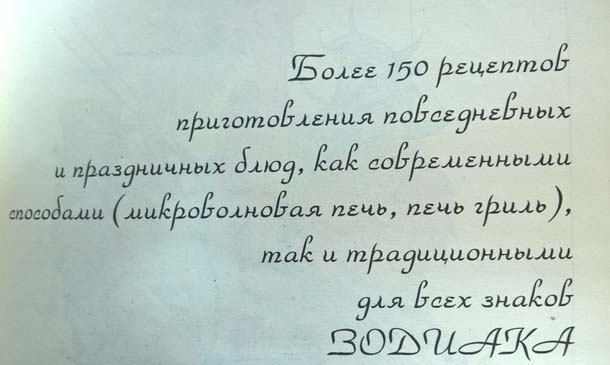 Более 150 рецептов
приготовления повседневных
и праздничных блюд, как современными
способами (микроволновая печь, печь гриль),
так и традиционными
для всех знаков
ЗОДИАКА